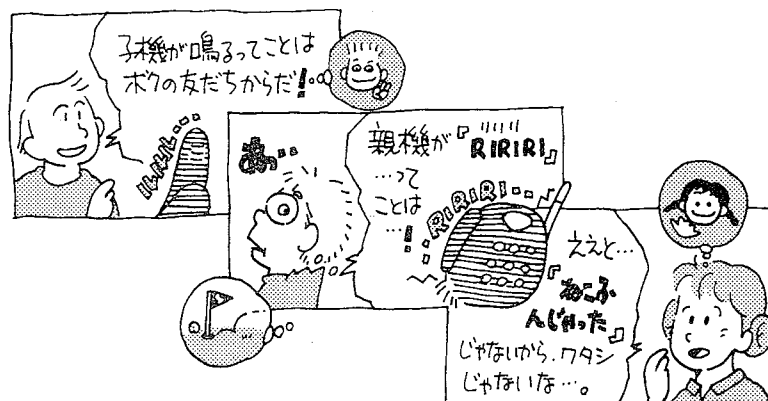 子機が鳴るってことは
ボクの友だちからだ!
ルルルル…
あっ…
親機が『RIRIRI』
…って
ことは
…!
RIRIRI…
ええと…
『ねこふ
んじゃった』
じゃないから、ワタシ
じゃないな…。